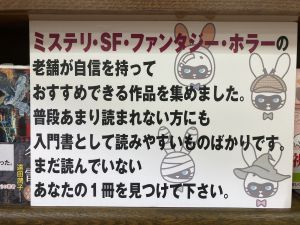 ミステリ・SF・ファンタジー・ホラーの
老舗が自信を持って
おすすめできる作品を集めました。
普段あまり読まれない方にも
入門書として読みやすいものばかりです。
まだ読んでいない
あなたの1冊を見つけて下さい。
った。